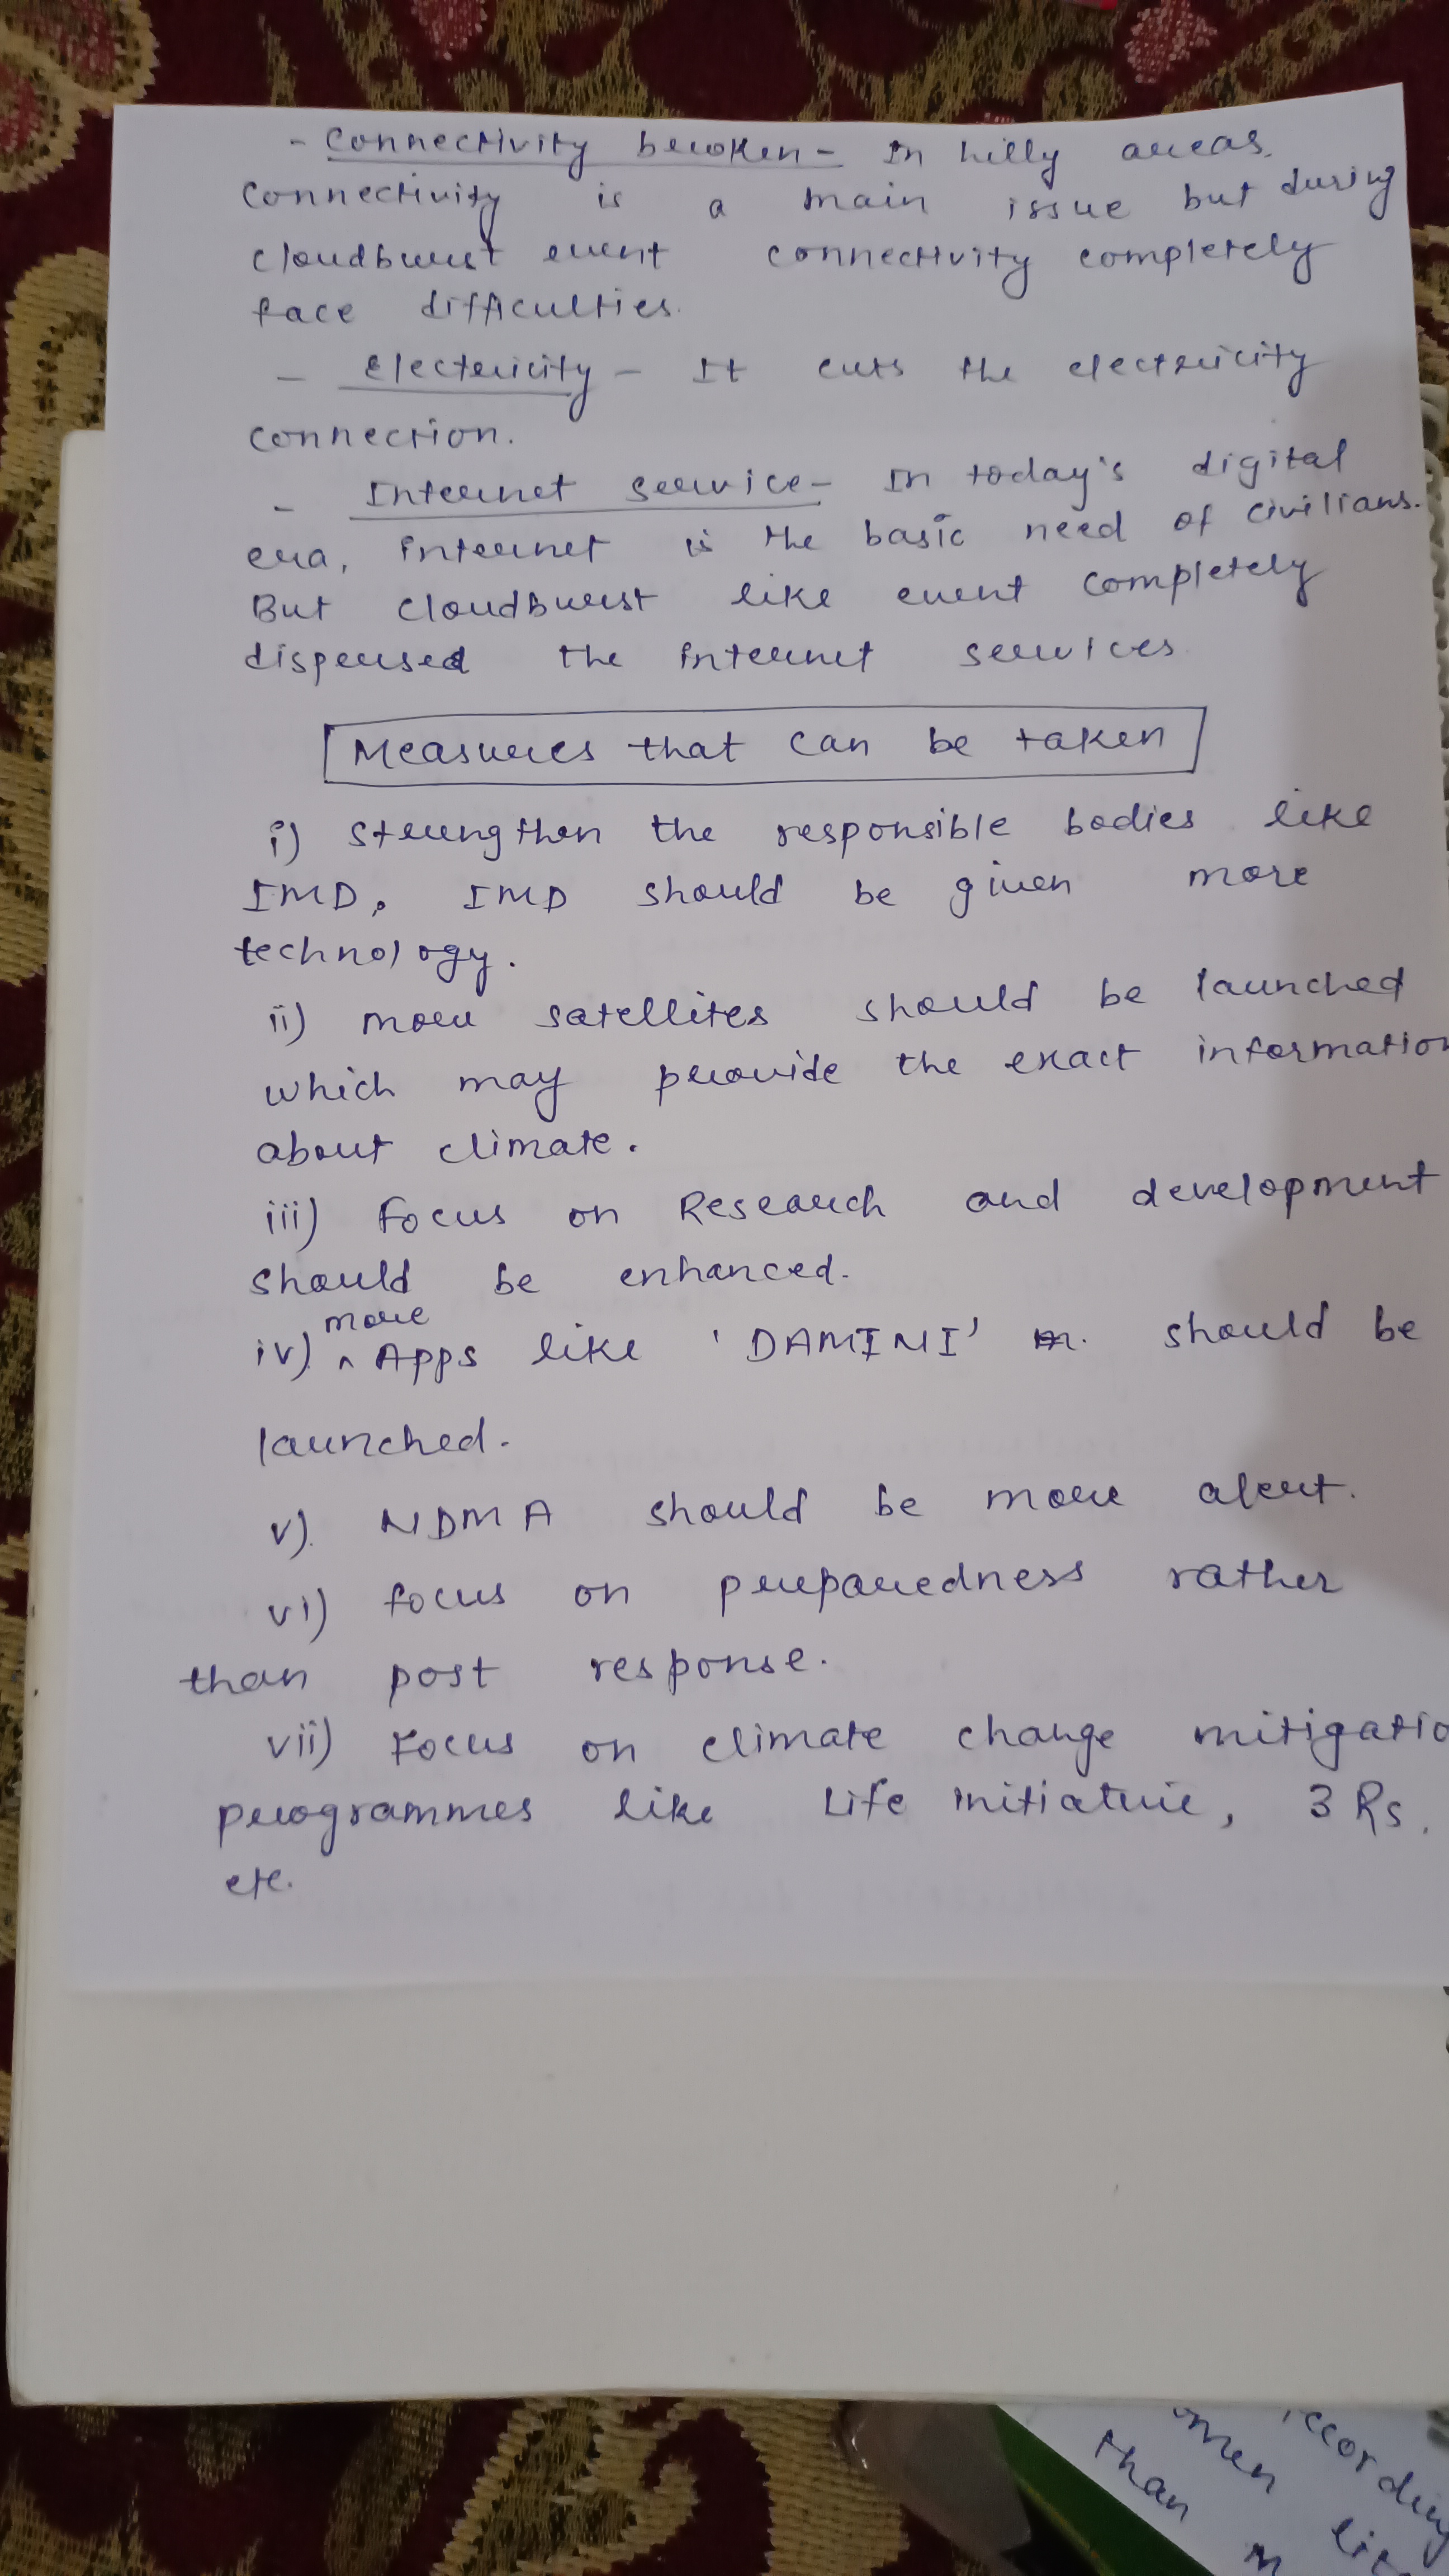 - Connectivity broken - In hilly areas,
connectivity is a main issue but during
cloudburst event connectivity completely
face difficulties.
- Electricity - It cuts the electricity
connection.
- Internet service - In today's digital
era, internet is the basic need of civilians.
But cloudburst like event completely
dispersed the internet services
Measures that can be taken
i) strengthen the responsible bodies like
IMD. IMD should be given more
technology.
ii) more satellites should be launched
which may provide the exact information
about climate.
iii) Focus on Research and development
should be enhanced.
more
iv) ^ Apps like 'DAMINI' should be
launched.
v). NDMA should be more alert.
vi) focus on preparedness rather
than post response.
vii) Focus on climate change mitigatio
programmes like Life initiative, 3 Rs.
etc.
ccording
omen lit
than m